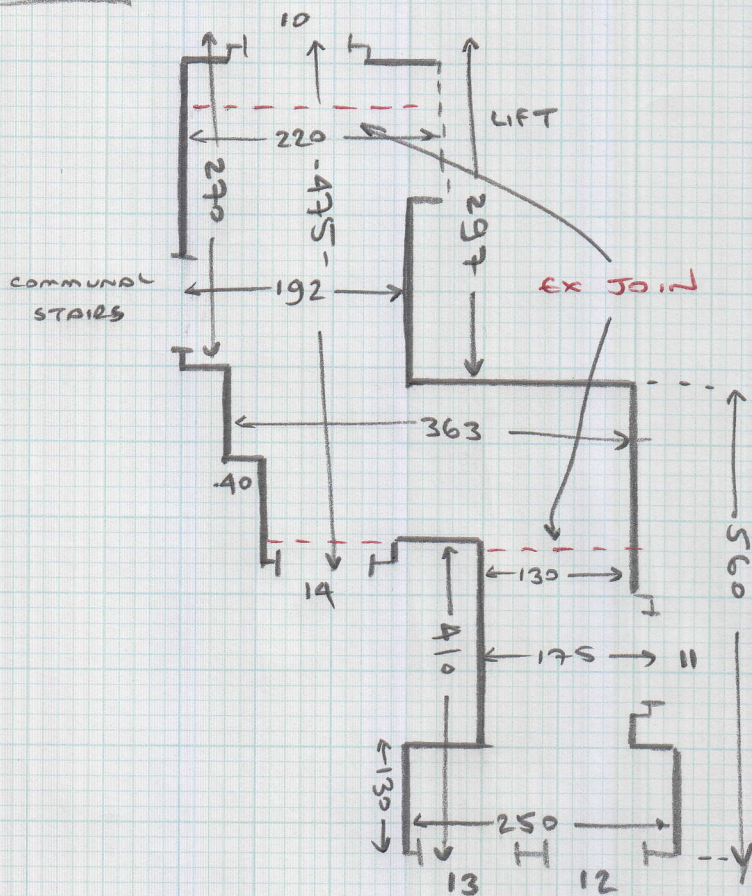 10
LIFT
220
270
475
297
COMMUNAL
STAIRS
192
EX JOIN
363
.40
560
130
14
410
175
11
130
250
13
12